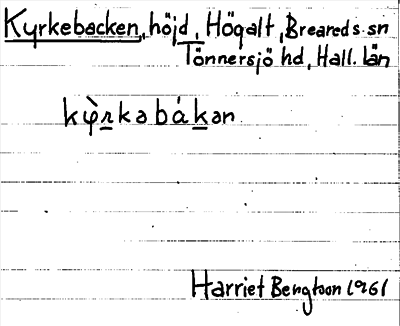 Kyrkebacken, höjd, Högalt, Breareds sn
Tönnersjö hd, Hall. län
kỳrkəbákən
Harriet Bengtson 1961